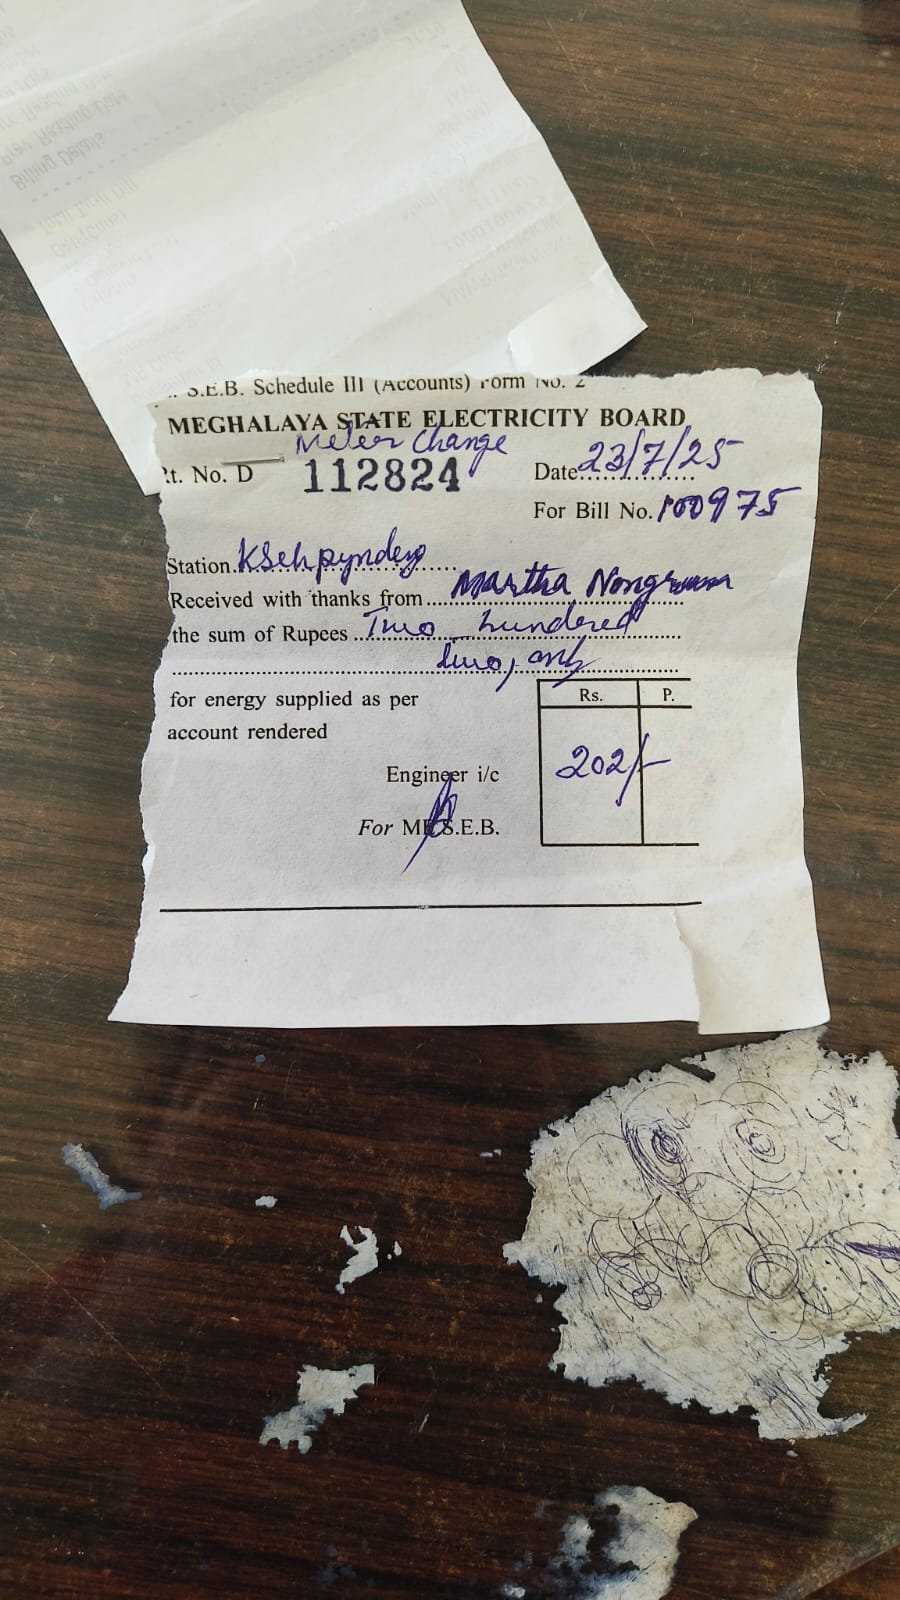 S.E.B. Schedule III (Accounts) Form No. 2
MEGHALAYA STATE ELECTRICITY BOARD
Meter Change
Rt. No. D 112824 Date 23/7/25
For Bill No. 100975
Station
Received with thanks from Martha
the sum of Rupees Two hundered
two, only
for energy supplied as per
account rendered
Rs. P.
202/-
Engineer i/c
For Me.S.E.B.